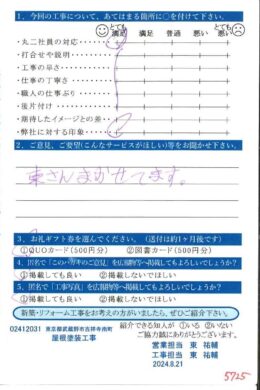 1. 今回の工事について、あてはまる箇所に○を付けて下さい。
とても満足 満足 普通 悪い とても悪い
・丸二社員の対応
・打合せや説明
・工事の早さ
・仕事の丁寧さ
・職人の仕事ぶり
・後片付け
・期待したイメージとの差
・弊社に対する印象
2. ご意見、ご要望(こんなサービスがほしい)等をお聞かせ下さい。
東さんまかせてます。
3. お礼ギフト券を選んでください。(送付は約1ヶ月後です)
①QUOカード(500円分) ②図書カード(500円分)
4. 匿名で「このハガキのご意見」を広報物等へ掲載してもよろしいでしょうか?
①掲載しても良い ②掲載しないでほしい
5. 匿名で「工事写真」を広報物等へ掲載してもよろしいでしょうか?
①掲載しても良い ②掲載しないでほしい
新築・リフォーム工事をお考えの方がいましたら、ぜひご紹介下さい。
紹介できる知人が ①いる ②いない
02412031 東京都武蔵野市吉祥寺南町
ご協力誠にありがとうございます。
屋根塗装工事
営業担当 東 祐輔
工事担当 東 祐輔
2024.8.21
5725